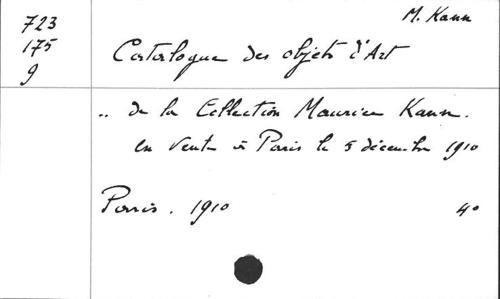 M. Kann
723
175
9
Catalogue des objets d'Art
.. de la Collection Maurice Kann.
en vente à Paris le 5 décembre 1910
Paris. 1910 4°